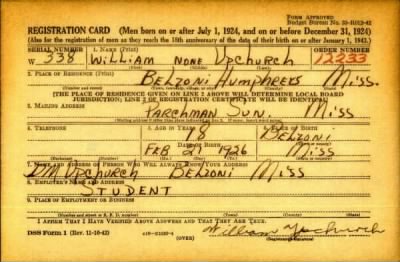 Form Approved
Budget Bureau No. 33-R012-42
REGISTRATION CARD (Men born on or after July 1, 1924, and on or before December 31, 1924)
(Also for the registration of men as they reach the 18th anniversary of the date of their birth on or after January 1, 1943.)
SERIAL NUMBER 1. NAME (Print) ORDER NUMBER
W 338 WILLIAM NONE UPCHURCH 12233
2. PLACE OF RESIDENCE (Print)
BELZONI HUMPHREYS MISS.
[THE PLACE OF RESIDENCE GIVEN ON LINE 2 ABOVE WILL DETERMINE LOCAL BOARD
JURISDICTION; LINE 2 OF REGISTRATION CERTIFICATE WILL BE IDENTICAL]
3. MAILING ADDRESS
PARCHMAN SUN. MISS.
4. TELEPHONE 5. AGE IN YEARS 6. PLACE OF BIRTH
18 BELZONI
DATE OF BIRTH
FEB 27 1926 MISS
7. NAME AND ADDRESS OF PERSON WHO WILL ALWAYS KNOW YOUR ADDRESS
DM UPCHURCH BELZONI MISS
8. EMPLOYER'S NAME AND ADDRESS
STUDENT
9. PLACE OF EMPLOYMENT OR BUSINESS
(Number and street or R. F. D. number) (Town) (County) (State)
I AFFIRM THAT I HAVE VERIFIED ABOVE ANSWERS AND THAT THEY ARE TRUE.
DSS Form 1 (Rev. 11-16-42) (OVER) William Upchurch
(Registrant's signature)